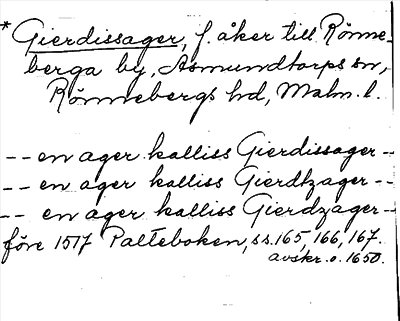 * Gierdissager, f. åker till Rönne-
berga by, Asmundtorps sn,
Rönnebergs hd, Malm. l.
-- en ager kalliss Gierdissager --
-- en ager kalliss Gierdtzager --
-- en ager kalliss Gierdzager --
före 1517 Palteboken, ss. 165, 166, 167.
avskr. o. 1650.